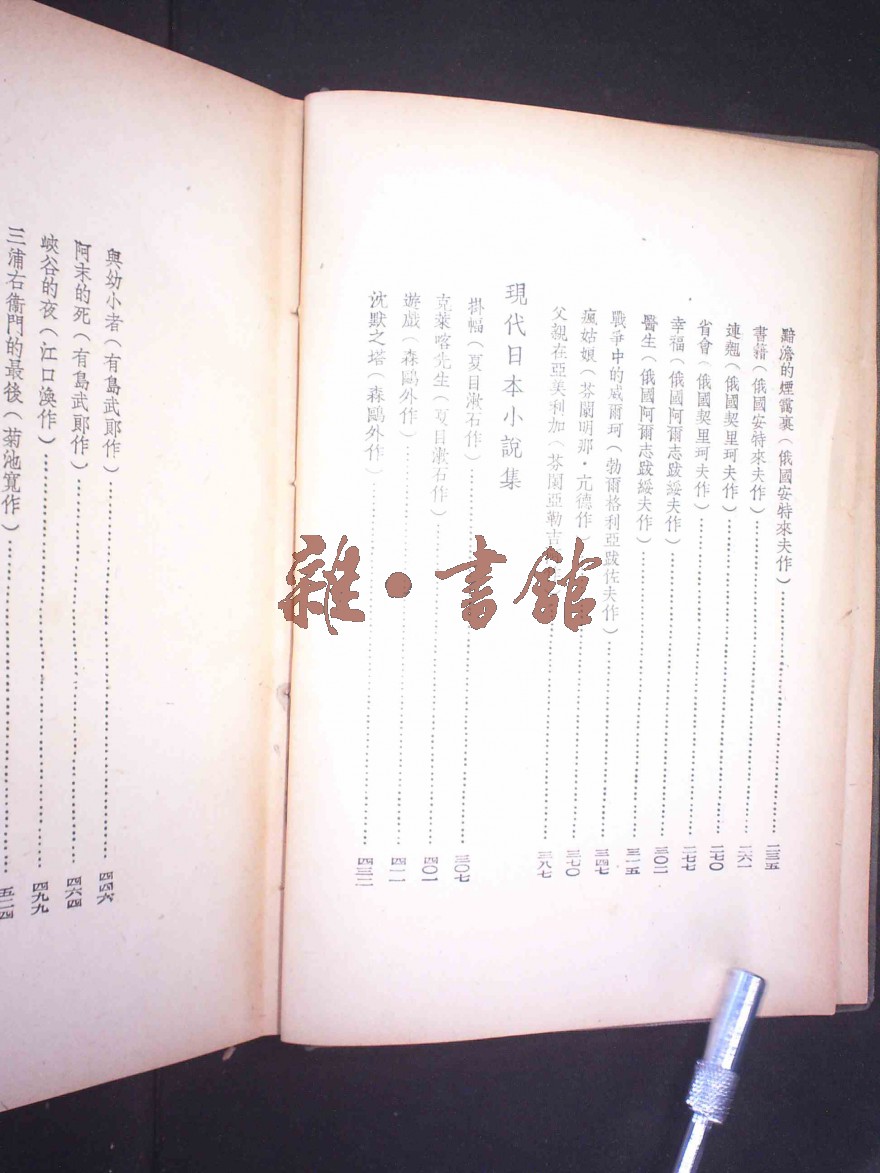 黯澹的煙靄裏(俄國安特來夫作)……二三五
書籍(俄國安特來夫作)……二六一
連翹(俄國契里珂夫作)……二七〇
省會(俄國契里珂夫作)……二七七
幸福(俄國阿爾志跋綏夫作)……三〇二
醫生(俄國阿爾志跋綏夫作)……三一五
戰爭中的威爾珂(勃爾格利亞跋佐夫作)……三四七
瘋姑娘(芬蘭明那·亢德作)……三七〇
父親在亞美利加(芬蘭亞勒吉……三八七
現代日本小說集
掛幅(夏目漱石作)……三〇七
克萊喀先生(夏目漱石作)……四〇一
遊戲(森鷗外作)……四一一
沈默之塔(森鷗外作)……四三二
與幼小者(有島武郞作)……四四六
阿末的死(有島武郞作)……四六四
峽谷的夜(江口渙作)……四九九
三浦右衞門的最後(菊池寬作)……五二四
雜·書館